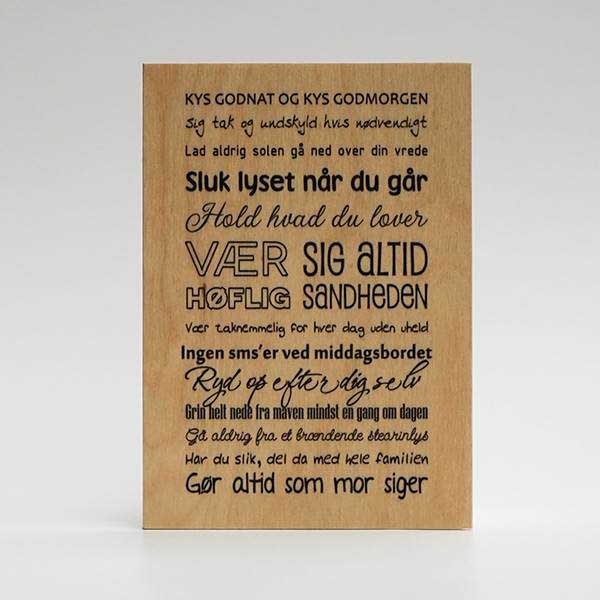 KYS GODNAT OG KYS GODMORGEN
Sig tak og undskyld hvis nødvendigt
Lad aldrig solen gå ned over din vrede
Sluk lyset når du går
Hold hvad du lover
VÆR HØFLIG
SIG ALTID SANDHEDEN
Vær taknemmelig for hver dag uden uheld
Ingen sms'er ved middagsbordet
Ryd op efter dig selv
Grin helt nede fra maven mindst en gang om dagen
Gå aldrig fra et brændende stearinlys
Har du slik, del da med hele familien
Gør altid som mor siger